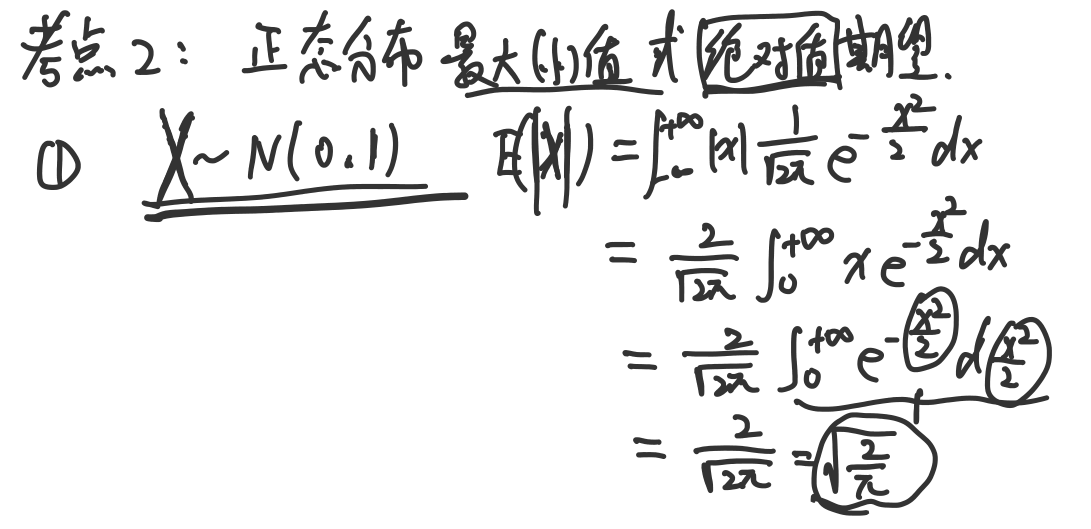 考点2: 正态分布最大(小)值或绝对值期望.
① X~N(0.1) E(|X|) = ∫_{-∞}^{+∞} |x| \frac{1}{\sqrt{2π}} e^{-\frac{x^2}{2}} dx
= \frac{2}{\sqrt{2π}} ∫_0^{+∞} x e^{-\frac{x^2}{2}} dx
= \frac{2}{\sqrt{2π}} ∫_0^{+∞} e^{-\frac{x^2}{2}} d\frac{x^2}{2}
1
= \frac{2}{\sqrt{2π}} = \sqrt{\frac{2}{π}}